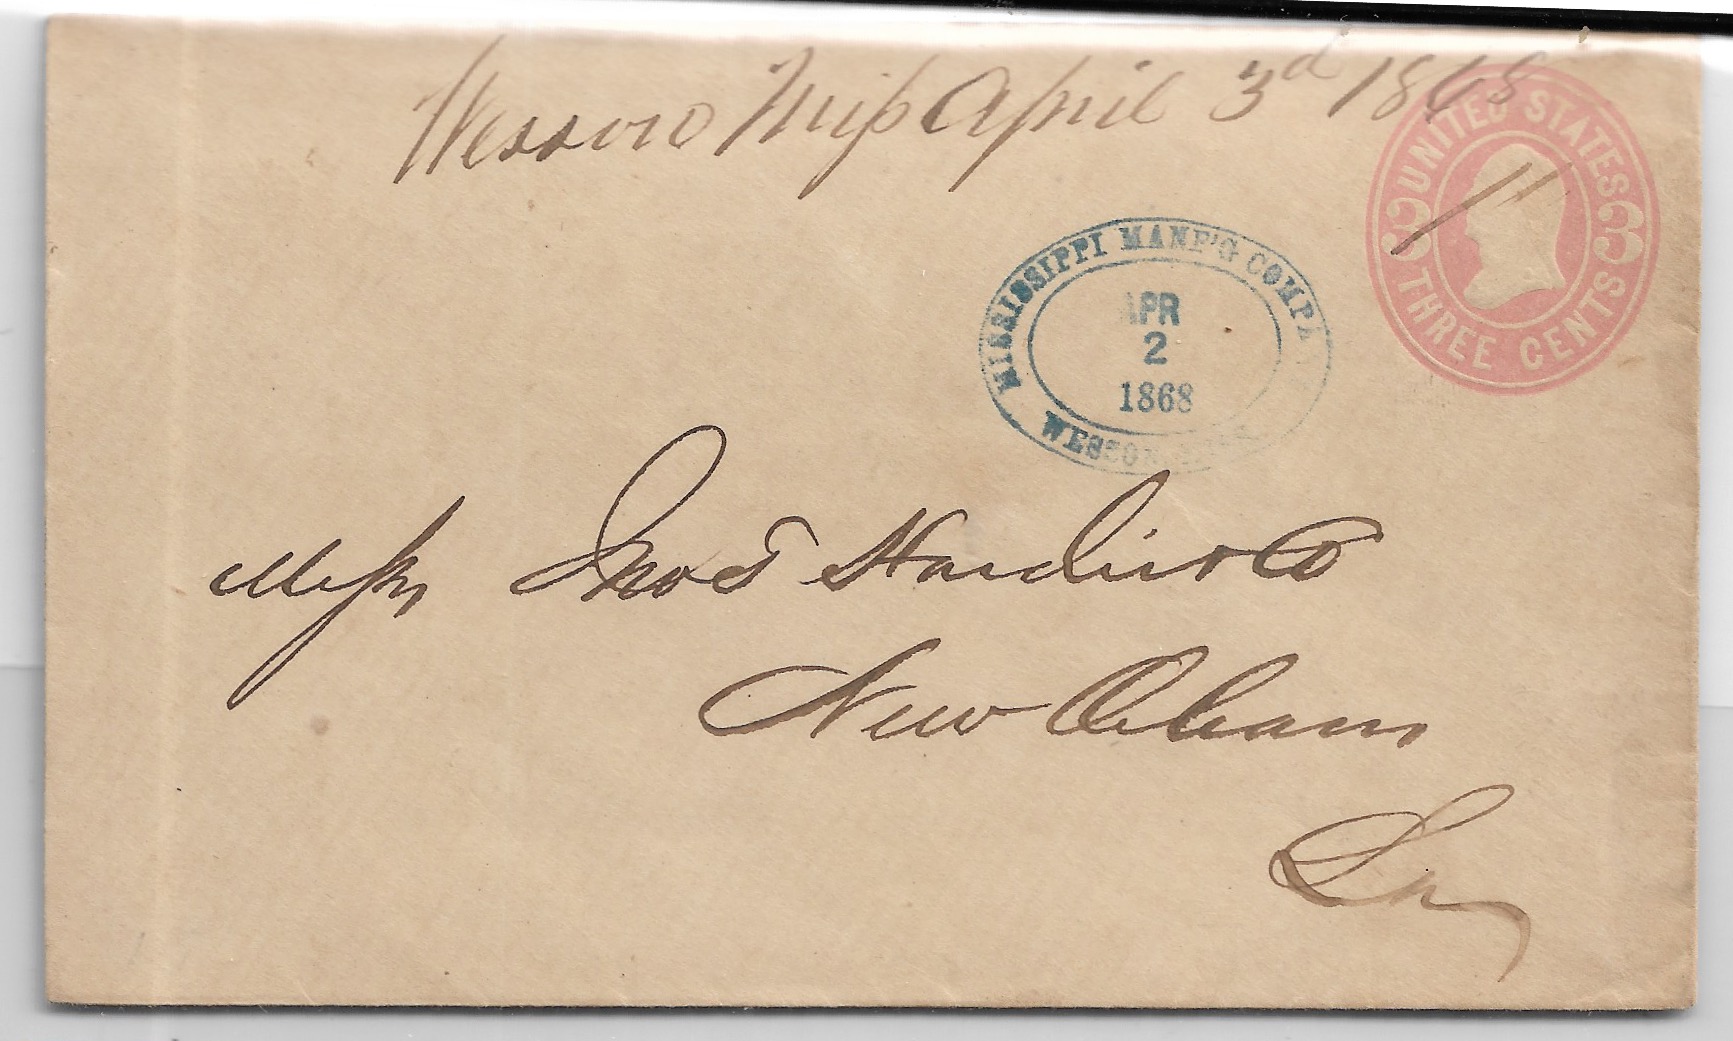 Wesson Miſs April 3d 1868
UNITED STATES
3 3
THREE CENTS
MISSISSIPPI MANF'G COMPANY
APR
2
1868
WESSON, MISS.
Meſsrs Jno T Hardie & Co
New Orleans
La